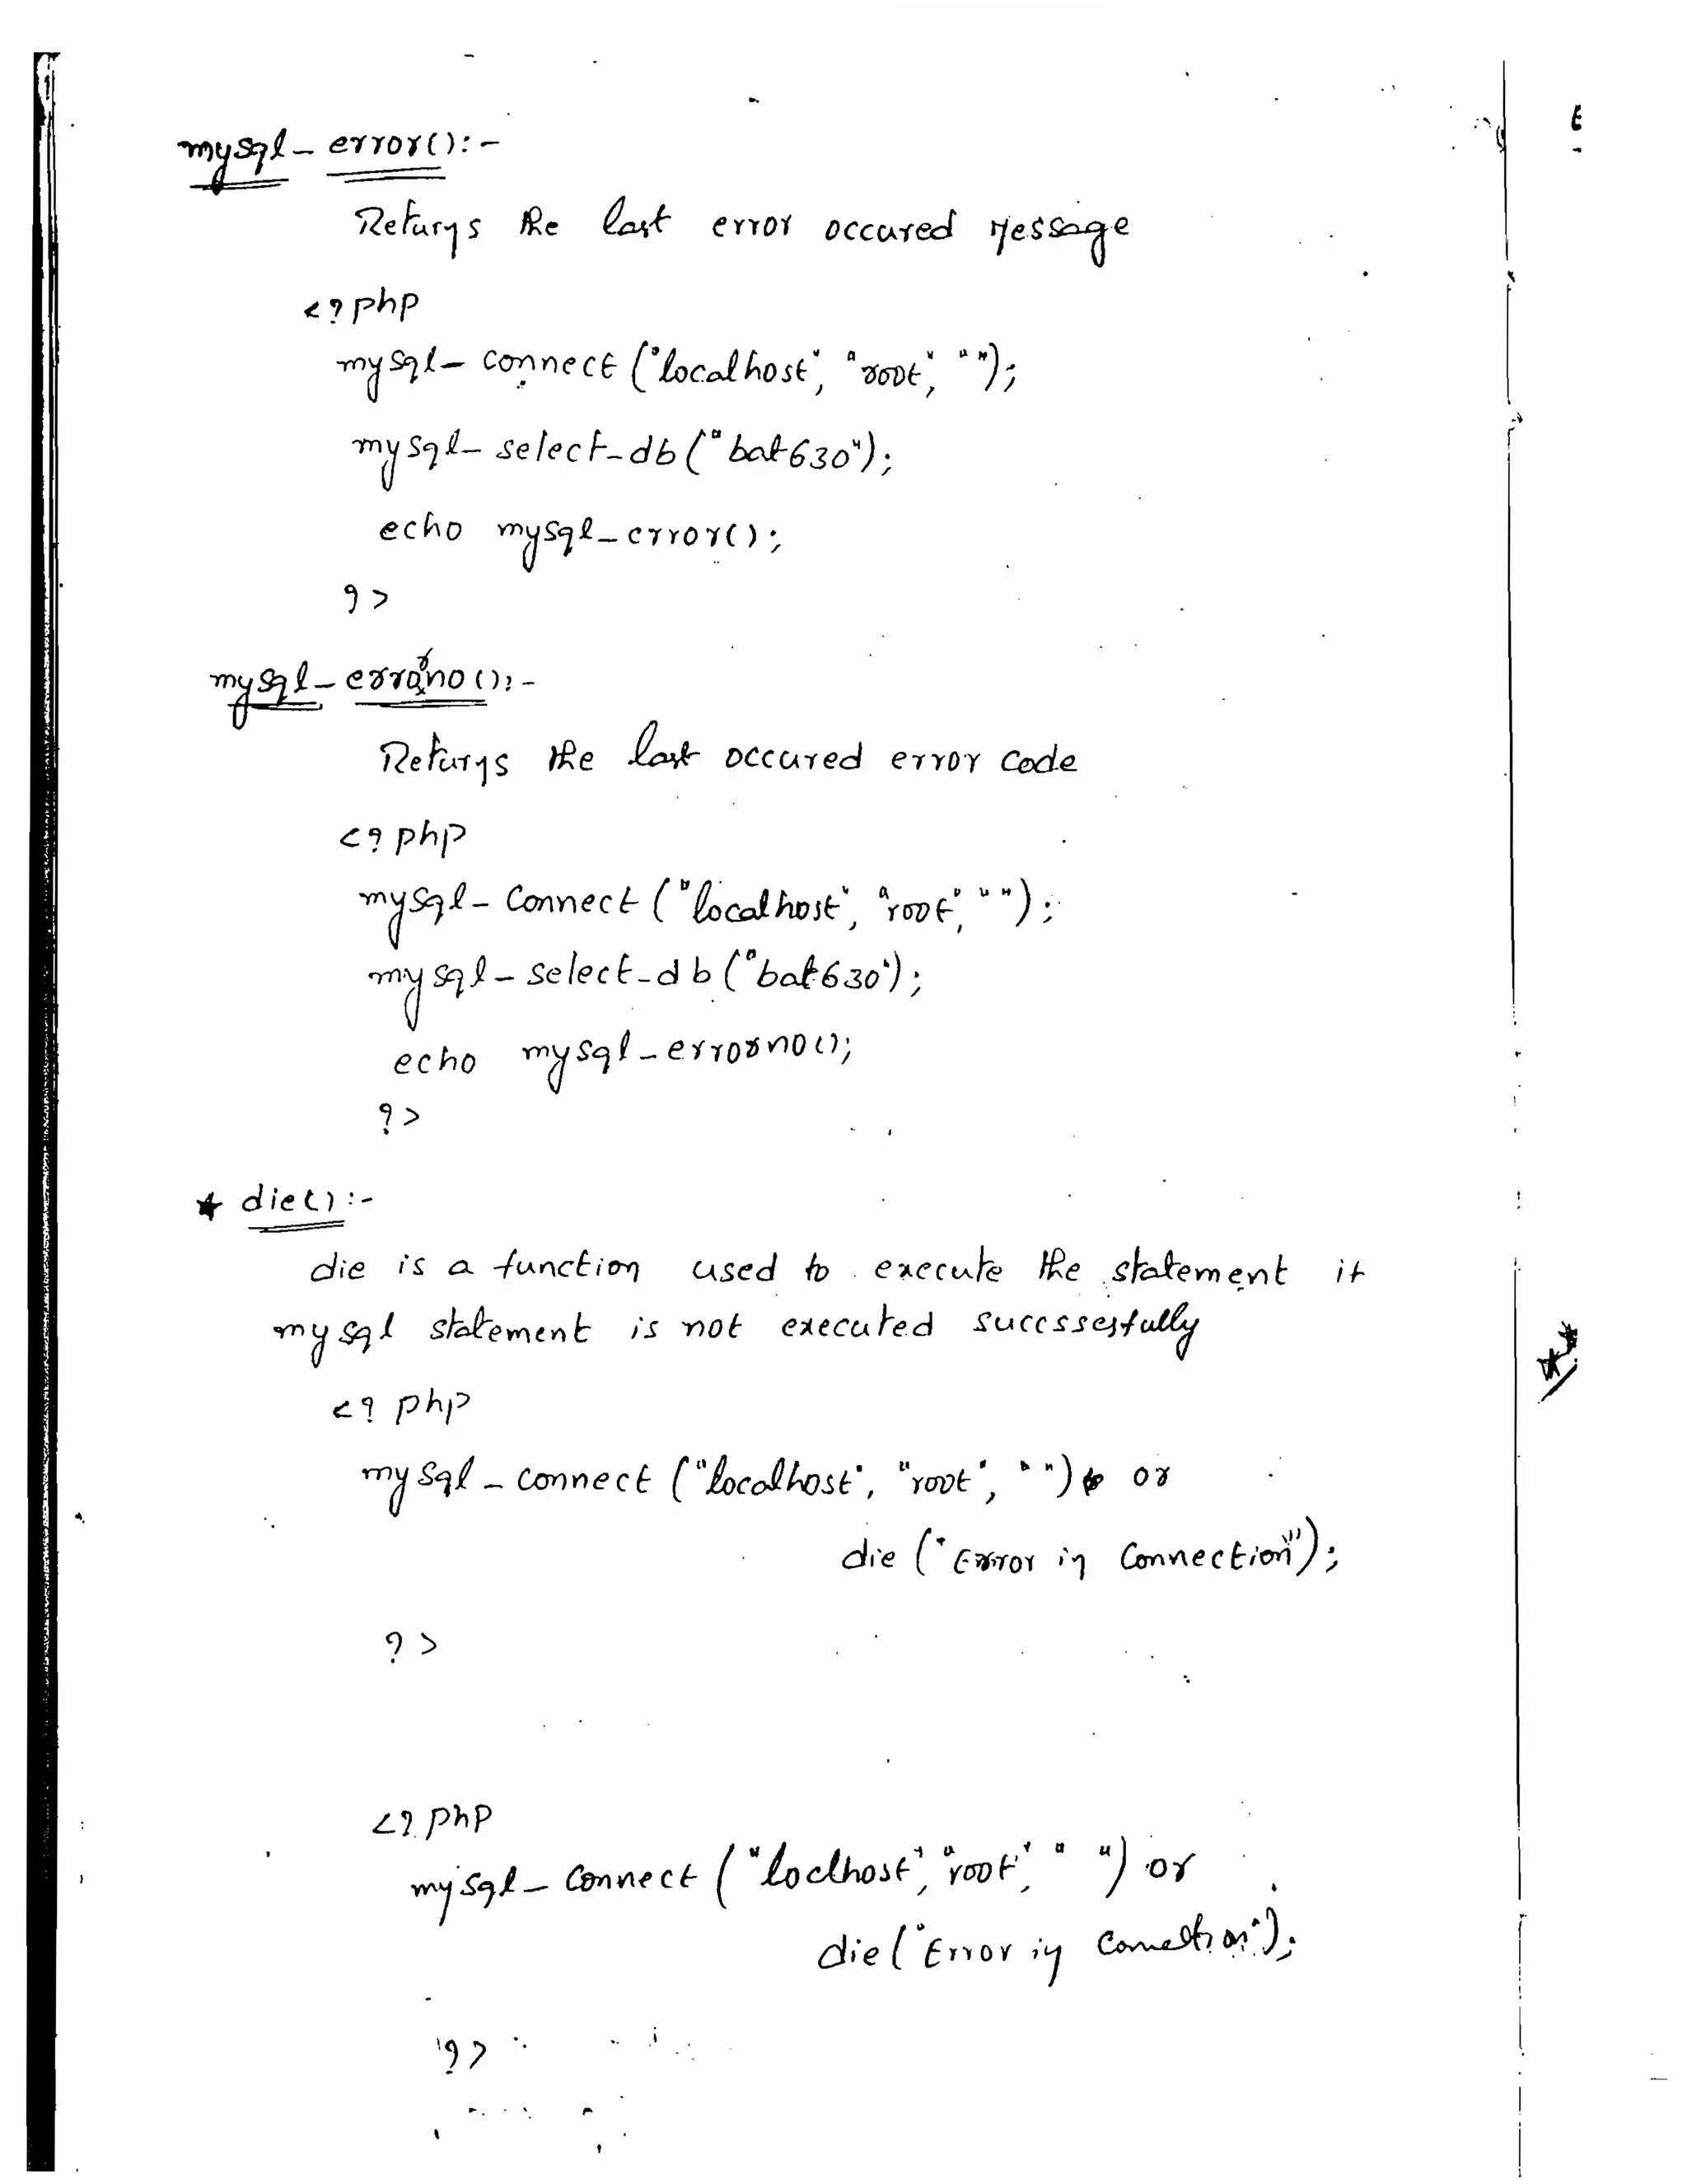 mysql_error():-
Returns the last error occured Message
<?php
mysql_connect("localhost", "root", "");
mysql_select_db("bat630");
echo mysql_error();
?>
mysql_errorno():-
Returns the last occured error code
<?php
mysql_connect("localhost", "root", "");
mysql_select_db("bat630");
echo mysql_errorno();
?>
* die():-
die is a function used to execute the statement if
mysql statement is not executed succssesfully
<?php
mysql_connect("localhost", "root", "") or
die("Error in Connection");
?>
<?php
mysql_connect("loclhost", "root", " ") or
die("Error in Connection");
?>